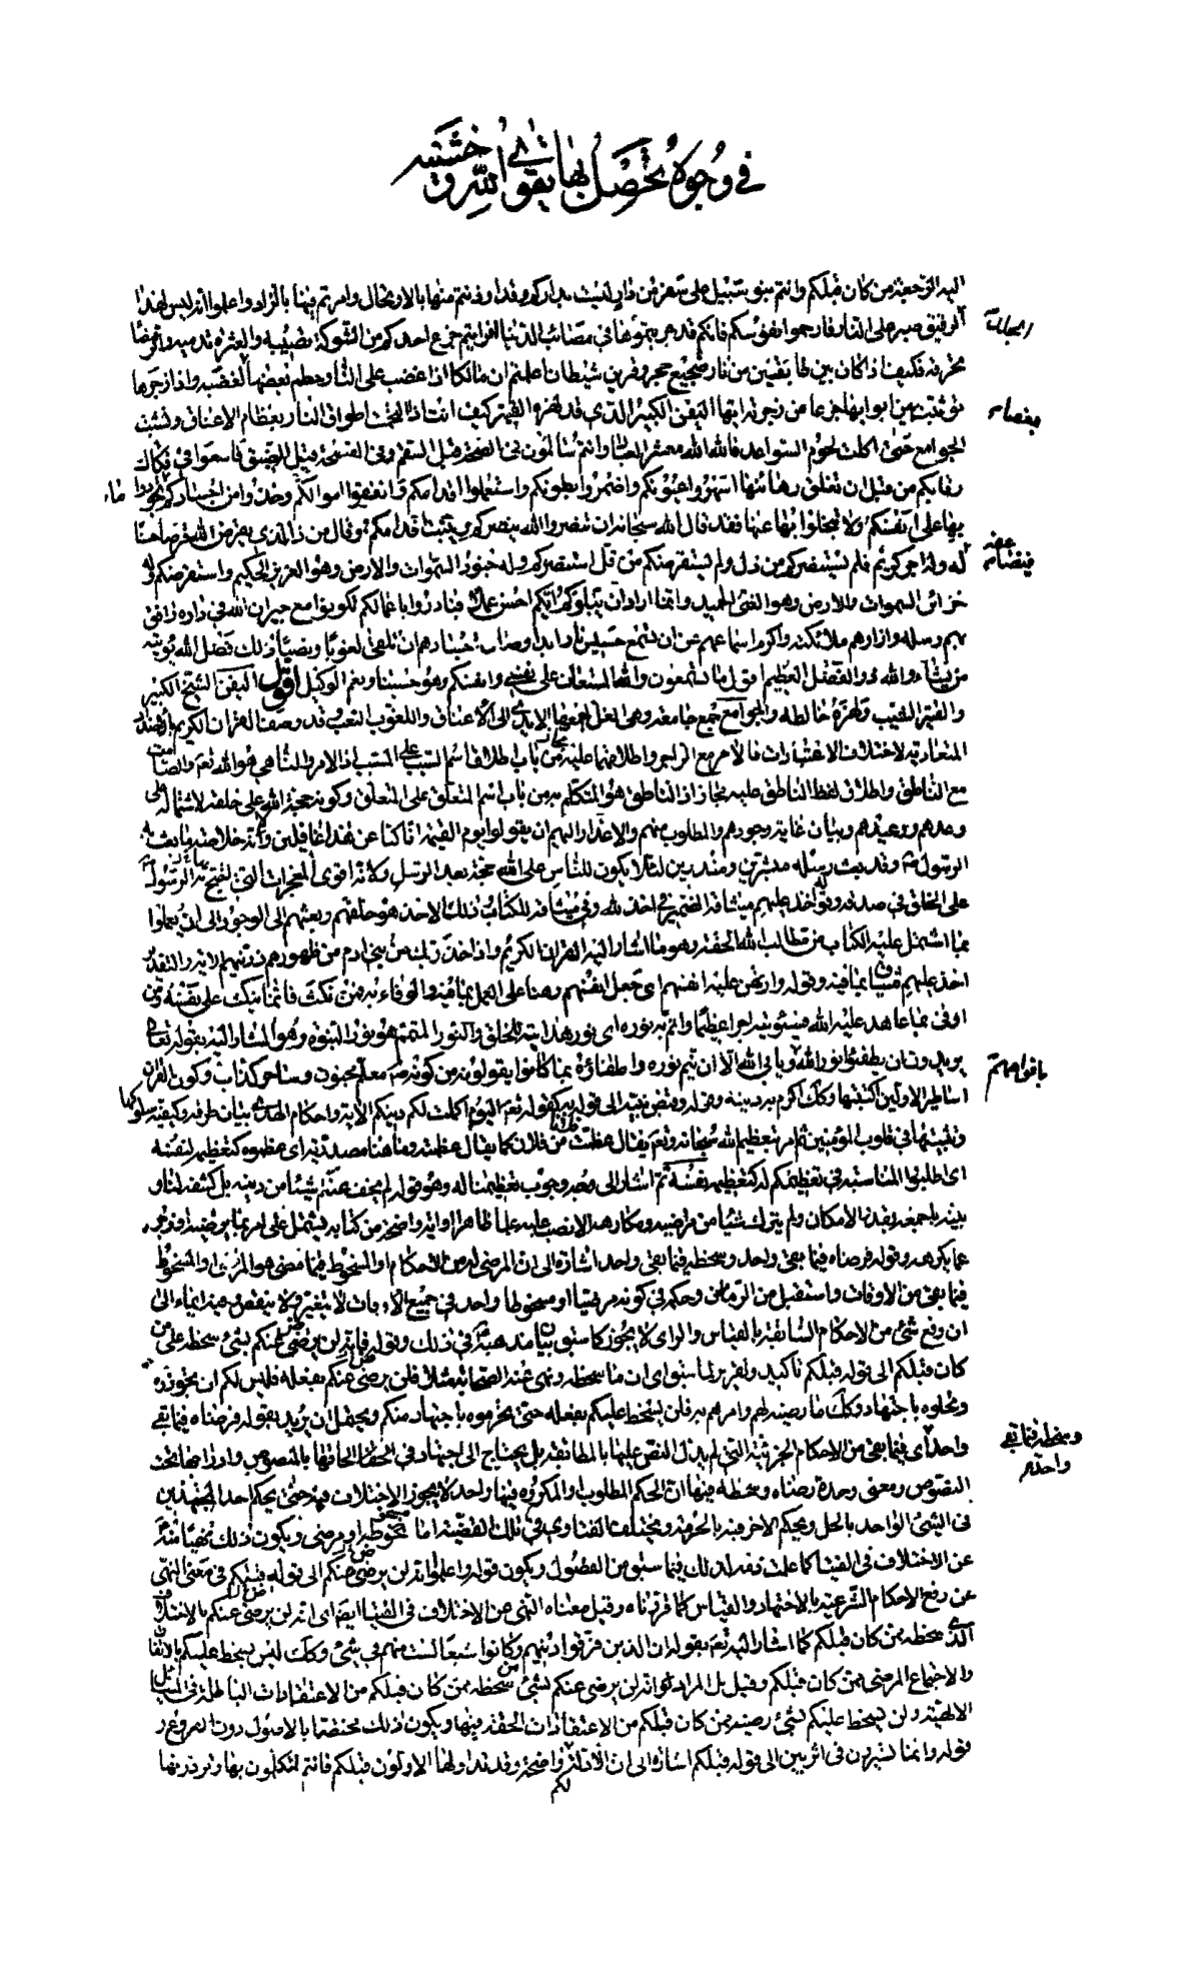 في وجوه تحصل بها تقوى الله وخشيته
اليه الرجعة من كان قبلكم وانتم بنو سبيل على سفر من دار ليست بداركم وقد اوذنتم منها بالارتحال وامرتم فيها بالزاد واعلموا انه ليس لهذا
الجلد
الرقيق صبر على النار فارحموا نفوسكم فانكم قد جربتموها في مصائب الدنيا افرايتم جزع احدكم من الشوكة تصيبه والعثرة تدميه والرمضاء
تحرقه فكيف اذا كان بين طابقين من نار ضجيع حجر وقرين شيطان اعلمتم ان مالكا اذا غضب على النار حطم بعضها لغضبه واذا زجرها
توثبت بين ابوابها جزعا من زجرته ايها اليفن الكبير الذي قد لهزه القتير كيف انت اذا التحمت اطواق النار بعظام الاعناق ونشبت
الجوامع حتى اكلت لحوم السواعد فالله الله معشر العباد وانتم سالمون في الصحة قبل السقم وفي الفسحة قبل الضيق فاسعوا في فكاك
رقابكم من قبل ان تغلق رهائنها اسهروا عيونكم واضمروا بطونكم واستعملوا اقدامكم وانفقوا اموالكم وخذوا من اجسادكم تجودوا
بها على انفسكم ولا تبخلوا بها عنها فقد قال الله سبحانه ان تنصروا الله ينصركم ويثبت اقدامكم وقال من ذا الذي يقرض الله قرضا حسنا
فيضاعفه
له وله اجر كريم فلم يستنصركم من ذل ولم يستقرضكم من قل استنصركم وله جنود السموات والارض وهو العزيز الحكيم واستقرضكم وله
خزائن السموات والارض وهو الغني الحميد وانما اراد ان يبلوكم ايكم احسن عملا فبادروا باعمالكم تكونوا مع جيران الله في داره رافق
بهم رسله وازارهم ملائكته واكرم اسماعهم عن ان تسمع حسيس نار ابدا وصان اجسادهم ان تلقى لغوبا ونصبا ذلك فضل الله يؤتيه
من يشاء والله ذو الفضل العظيم اقول ما تسمعون والله المستعان على نفسي وانفسكم وهو حسبنا ونعم الوكيل اقول اليفن الشيخ الكبير
والقتير الشيب ولهزه خالطه والجوامع جمع جامعة وهي الغل لجمعها الايدي الى الاعناق واللغوب التعب وقد وصف القران الكريم
المتعارفة لاختلاف الاعتبارات فالآمر مع الزاجر واطلاقهما عليه مجاز من باب اطلاق اسم السبب على المسبب اذ الامر والناهي هو الله تعم والصامت
مع الناطق واطلاق لفظ الناطق عليه مجاز اذ الناطق هو المتكلم به من باب اسم المتعلق على المتعلق وكونه حجة الله على خلقه لاشتماله على
وعدهم ووعيدهم وبيان غاية وجودهم والمطلوب منهم والاعذار اليهم ان يقولوا يوم القيمة انا كنا عن هذا غافلين
الرسول وقد بعث رسله مبشرين ومنذرين لئلا يكون للناس على الله حجة بعد الرسل ولانه اقوى المعجزات التي
على الخلق في صدقه وقوله اخذ عليهم ميثاقه الضمير في اخذ لله وفي ميثاقه للكتاب وذلك الاخذ هو خلقهم وبعثهم الى الوجود الى ان يعملوا
بما اشتمل عليه الكتاب من مطالب الله الحقة وهو ما اشار اليه القران الكريم واذ اخذ ربك من بني ادم من ظهورهم ذريتهم الاية والتقدير
اخذ عليهم ميثاق بما فيه وقوله وارتهن عليه انفسهم اي جعل انفسهم رهنا على العمل بما فيه والوفاء به فمن نكث فانما ينكث على نفسه ومن
اوفى بما عاهد عليه الله فسيؤتيه اجرا عظيما واتم به نوره اي نور هدايته للخلق والنور المتمم هو نور النبوة وهو المشار اليه بقوله تعالى
بافواههم
يريدون ان يطفئوا نور الله ويابى الله الا ان يتم نوره واطفاؤه بما كانوا يقولونه من كونه معلم مجنون وساحر كذاب وكون القران
اساطير الاولين اكتتبها وكك اكرم به دينه وقوله وقبض نبيه الى قوله به كقوله تعم اليوم اكملت لكم دينكم الاية واحكام الهدى بيان طرقه وكيفية سلوكها
وتثبيتها في قلوب المؤمنين ثم امر بتعظيم الله سبحانه وتعم يقال عظمت من فلان كما يقال عظمته وما هنا مصدرية اي عظموه كتعظيمه لنفسه
اي اطلبوا المناسبة في تعظيمكم له كتعظيمه نفسه ثم اشار الى وجوب تعظيمنا له وهو قوله لم يخف عنكم شيئا من دينه بل كشفه لنا و
بينه باجمعه بقدر الامكان ولم يترك شيئا من مراضيه ومكارهه الا نصب عليه علما ظاهرا او اية واضحة من كتابه يشتمل على امر بما يرضيه او زجر
عما يكرهه وقوله فرضاه فيما بقى واحد وسخطه فيما بقى واحد اشارة الى ان المرضي له من الاحكام او المسخوط فيما مضى هو المرضي والمسخوط
فيما بقى من الاوقات واستقبل من الزمان وحكمه في كونه مرضيا او مسخوطا واحد في جميع الاوقات لا يتغير ولا ينقض وفيه ايماء الى
ان رفع شئ من الاحكام السابقة بالقياس والراي لا يجوز كما سبق بيان مذهبه في ذلك وقوله فانه لن يرضى عنكم بشئ سخطه على من
كان قبلكم الى قوله قبلكم تاكيد وتقرير لما سبق اي ان ما سخطه ونهى عنه الصحابة مثلا فلن يرضى عنكم بفعله فليس لكم ان تجوزوه
وتحلوه باجتهاد وكك ما رضيه لهم وامرهم به فلن يسخط عليكم بفعله حتى تحرموه باجتهاد منكم ويحتمل ان يريد بقوله فرضاه فيما بقى
وسخطه فيما بقى
واحد
واحد اي فيما بقى من الاحكام الجزئية التي لم يدل النص عليها بالمطابقة بل يحتاج الى اجتهاد في الحاقها بالمنصوص وادراجها تحت
النصوص ومعنى وحدة رضاه وسخطه فيها ان الحكم المطلوب والمكروه فيها واحد لا يجوز الاختلاف فيه حتى يحكم احد المجتهدين
في الشئ الواحد بالحل ويحكم الاخر فيه بالحرمة ويختلف الفتاوي في تلك القضية اما مسخوطه او مرضي ويكون ذلك نهيا منه
عن الاختلاف في الفتيا كما علمت ذمه لذلك فيما سبق من الفصول ويكون قوله واعلموا انه لن يرضى عنكم الى قوله قبلكم في معنى النهي
عن رفع الاحكام الشرعية بالاجتهاد والقياس كما قررناه وقيل معناه النهي عن الاختلاف في الفتيا ايضا اي انه لن يرضى عنكم بالاختلاف
الذي سخطه ممن كان قبلكم كما اشار اليه تعم بقوله ان الذين فرقوا دينهم وكانوا شيعا لست منهم في شئ وكك ليس يسخط عليكم بالاتفاق
والاجتماع المرضي ممن كان قبلكم وقيل بل المراد انه لن يرضى عنكم بشئ سخطه ممن كان قبلكم من الاعتقادات الباطلة في المسائل
الالهية ولن يسخط عليكم بشئ رضيه ممن كان قبلكم من الاعتقادات الحقة فيها ويكون ذلك مختصا بالاصول دون الفروع و
قوله وانما تسيرون في اثر بين الى قوله قبلكم اشارة الى ان الادلة لكم واضحة وقد تداولها الاولون قبلكم فانتم تتكلمون بها وترددونها